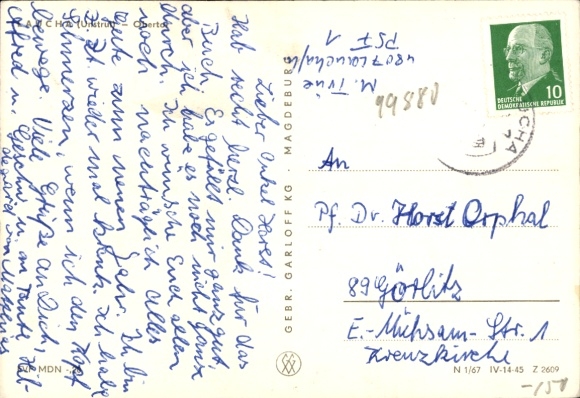 LAUCHA (Unstrut) - Obertor
Lieber Onkel Horst!
Hab recht herzl. Dank für das
Buch. Es gefällt mir ganz gut,
aber ich habe es noch nicht ganz
durch. Ich wünsche Euch allen
noch nachträglich alles
Gute zum neuen Jahr. Ich bin
z. Zt. wieder mal krank. Ich habe
Schmerzen, wenn ich den Kopf
bewege. Viele Grüße an Dich,
Gerlin u. an Tante
von Matthias
EVP MDN
GEBR. GARLOFF KG · MAGDEBURG
M. Trüe
4807 Laucha/U
PSF 1
99880
10
DEUTSCHE
DEMOKRATISCHE REPUBLIK
An
Pf. Dr. Horst Orphal
89 Görlitz
E.-Mühsam-Str. 1
Kreuzkirche
N 1/67 IV-14-45 Z 2609
-/50